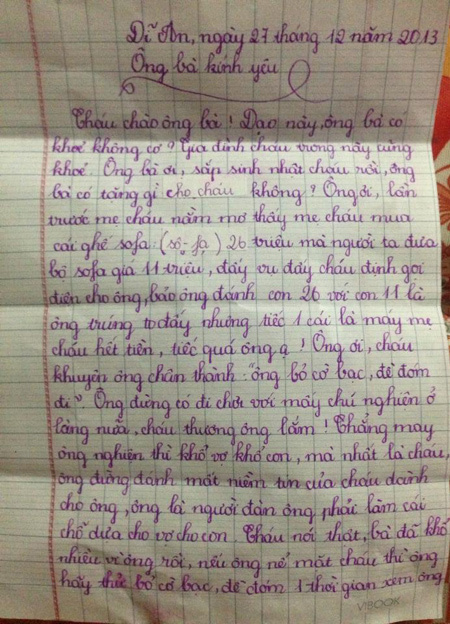 Dĩ An, ngày 27 tháng 12 năm 2013
Ông bà kính yêu
Cháu chào ông bà! Dạo này, ông bà có
khoẻ không cơ? Gia đình cháu trong này cũng
khoẻ. Ông bà ơi, sắp sinh nhật cháu rồi, ông
bà có tặng gì cho cháu không? Ông ơi, lần
trước mẹ cháu nằm mơ thấy mẹ cháu mua
cái ghế sofa: (sô-fa) 26 triệu mà người ta đưa
bộ sofa giá 11 triệu, đấy vụ đấy cháu định gọi
điện cho ông, bảo ông đánh con 26 với con 11 là
ông trúng to đấy nhưng tiếc 1 cái là máy mẹ
cháu hết tiền, tiếc quá ông ạ! Ông ơi, cháu
khuyên ông chân thành: "ông bỏ cờ bạc, đề đóm
đi". Ông đừng có đi chơi với mấy chú nghiện ở
làng nữa, cháu thương ông lắm! Chẳng may
ông nghiện thì khổ vợ khổ con, mà nhất là cháu,
ông đừng đánh mất niềm tin của cháu dành
cho ông, ông là người đàn ông phải làm cái
chỗ dựa cho vợ cho con. Cháu nói thật, bà đã khổ
nhiều vì ông rồi, nếu ông nể mặt cháu thì ông
hãy thử bỏ cờ bạc, đề đóm 1 thời gian xem ông
VIBOOK